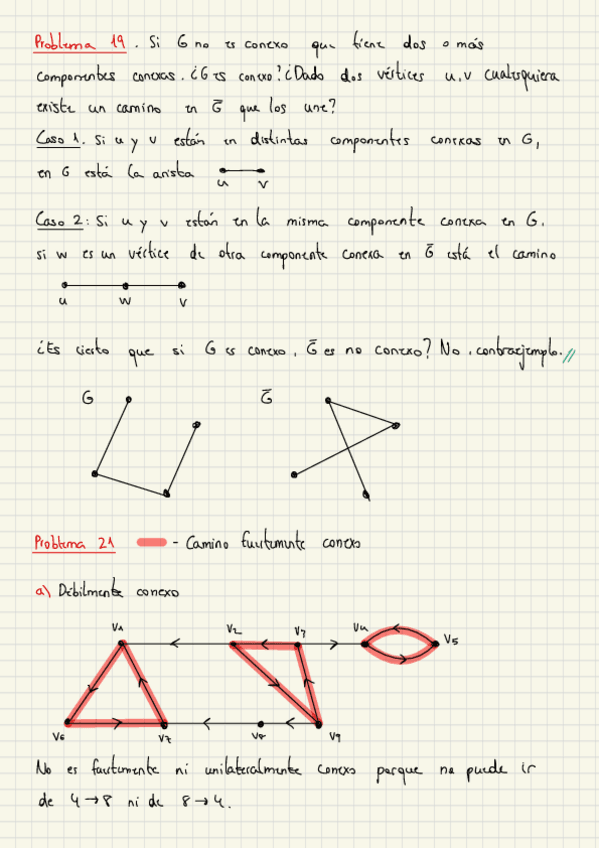 Problema 19. Si G no es conexo que tiene dos o más
componentes conexas. ¿G es conexo? ¿Dado dos vértices u,v cualesquiera
existe un camino en G̅ que los une?
Caso 1. Si u y v están en distintas componentes conexas en G,
en G está la arista
u v
Caso 2: Si u y v están en la misma componente conexa en G.
si w es un vértice de otra componente conexa en G̅ está el camino
u w v
¿Es cierto que si G es conexo, G̅ es no conexo? No, contraejemplo.
G G̅
Problema 21 - Camino fuertemente conexo
a) Débilmente conexo
V1 V2 V3 V4 V5
V6 V7 V8 V9
No es fuertemente ni unilateralmente conexo porque no puede ir
de 4 → 8 ni de 8 → 4.